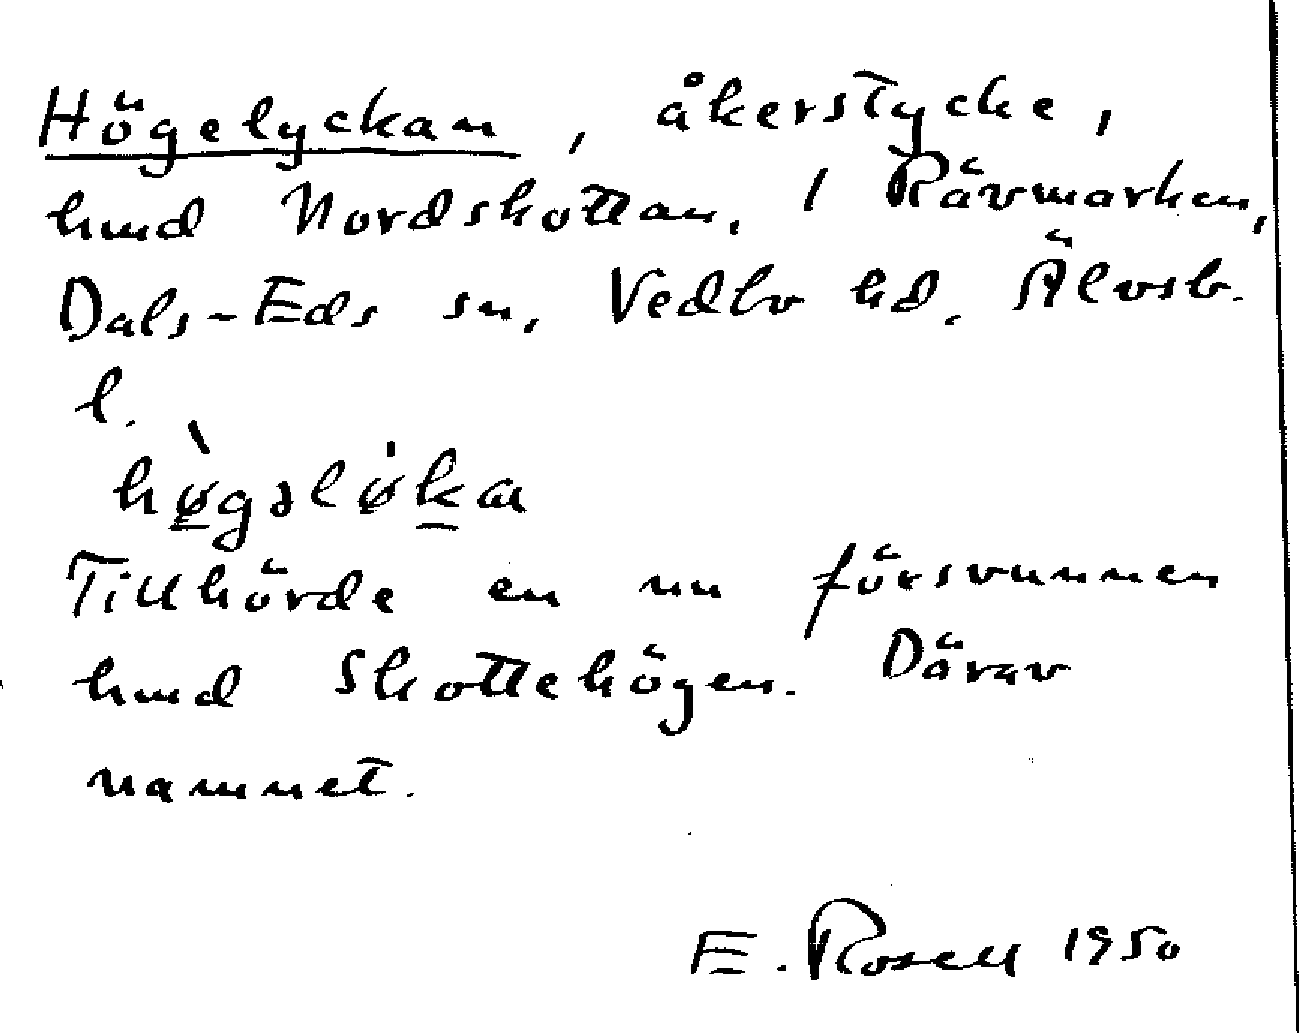 Högelyckan, åkerstycke,
hmd Nordskottan, i Rävmarken,
Dals-Eds sn, Vedbo hd, Älvsb.
l.
Tillhörde en nu försvunnen
hmd Skottehögen. Därav
namnet.
E. Rosell 1950